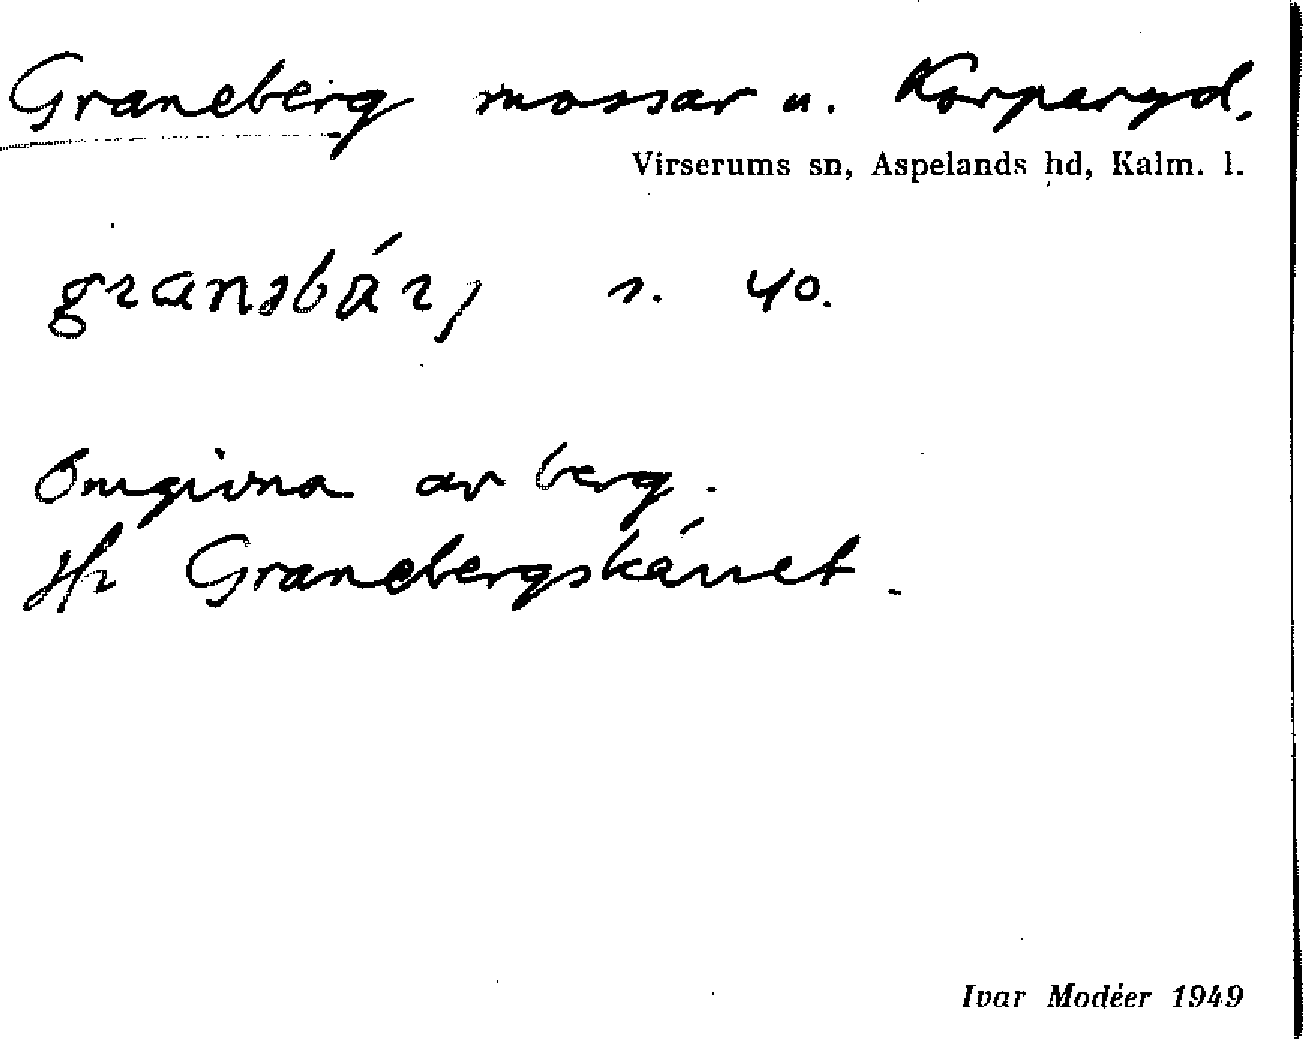 Graneberg mossar u. Korparyd.
Virserums sn, Aspelands hd, Kalm. l.
granəbárj s. 40.
Omgivna av berg.
Hr Granebergskärret.
Ivar Modéer 1949